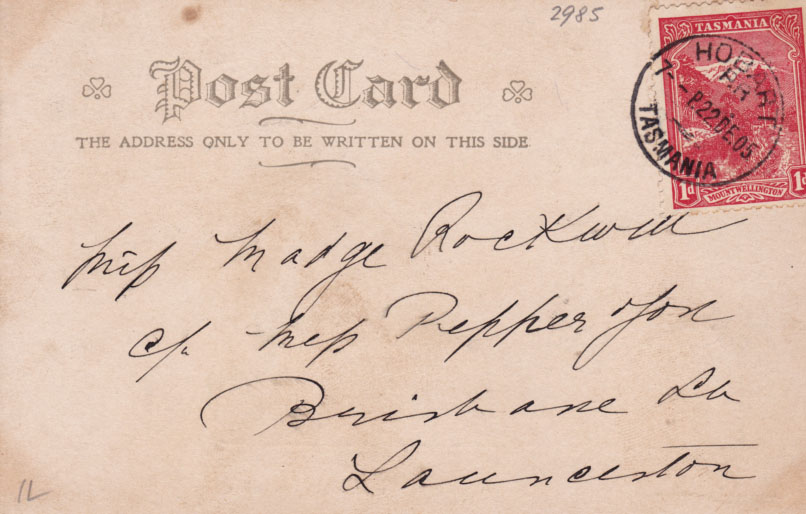 2985
Post Card
THE ADDRESS ONLY TO BE WRITTEN ON THIS SIDE.
TASMANIA
HOBART
22 DE 05
TASMANIA
1d MOUNT WELLINGTON 1d
Miss Madge Rockwell
c/o Pepperyson
Brisbane
Launceston
1L